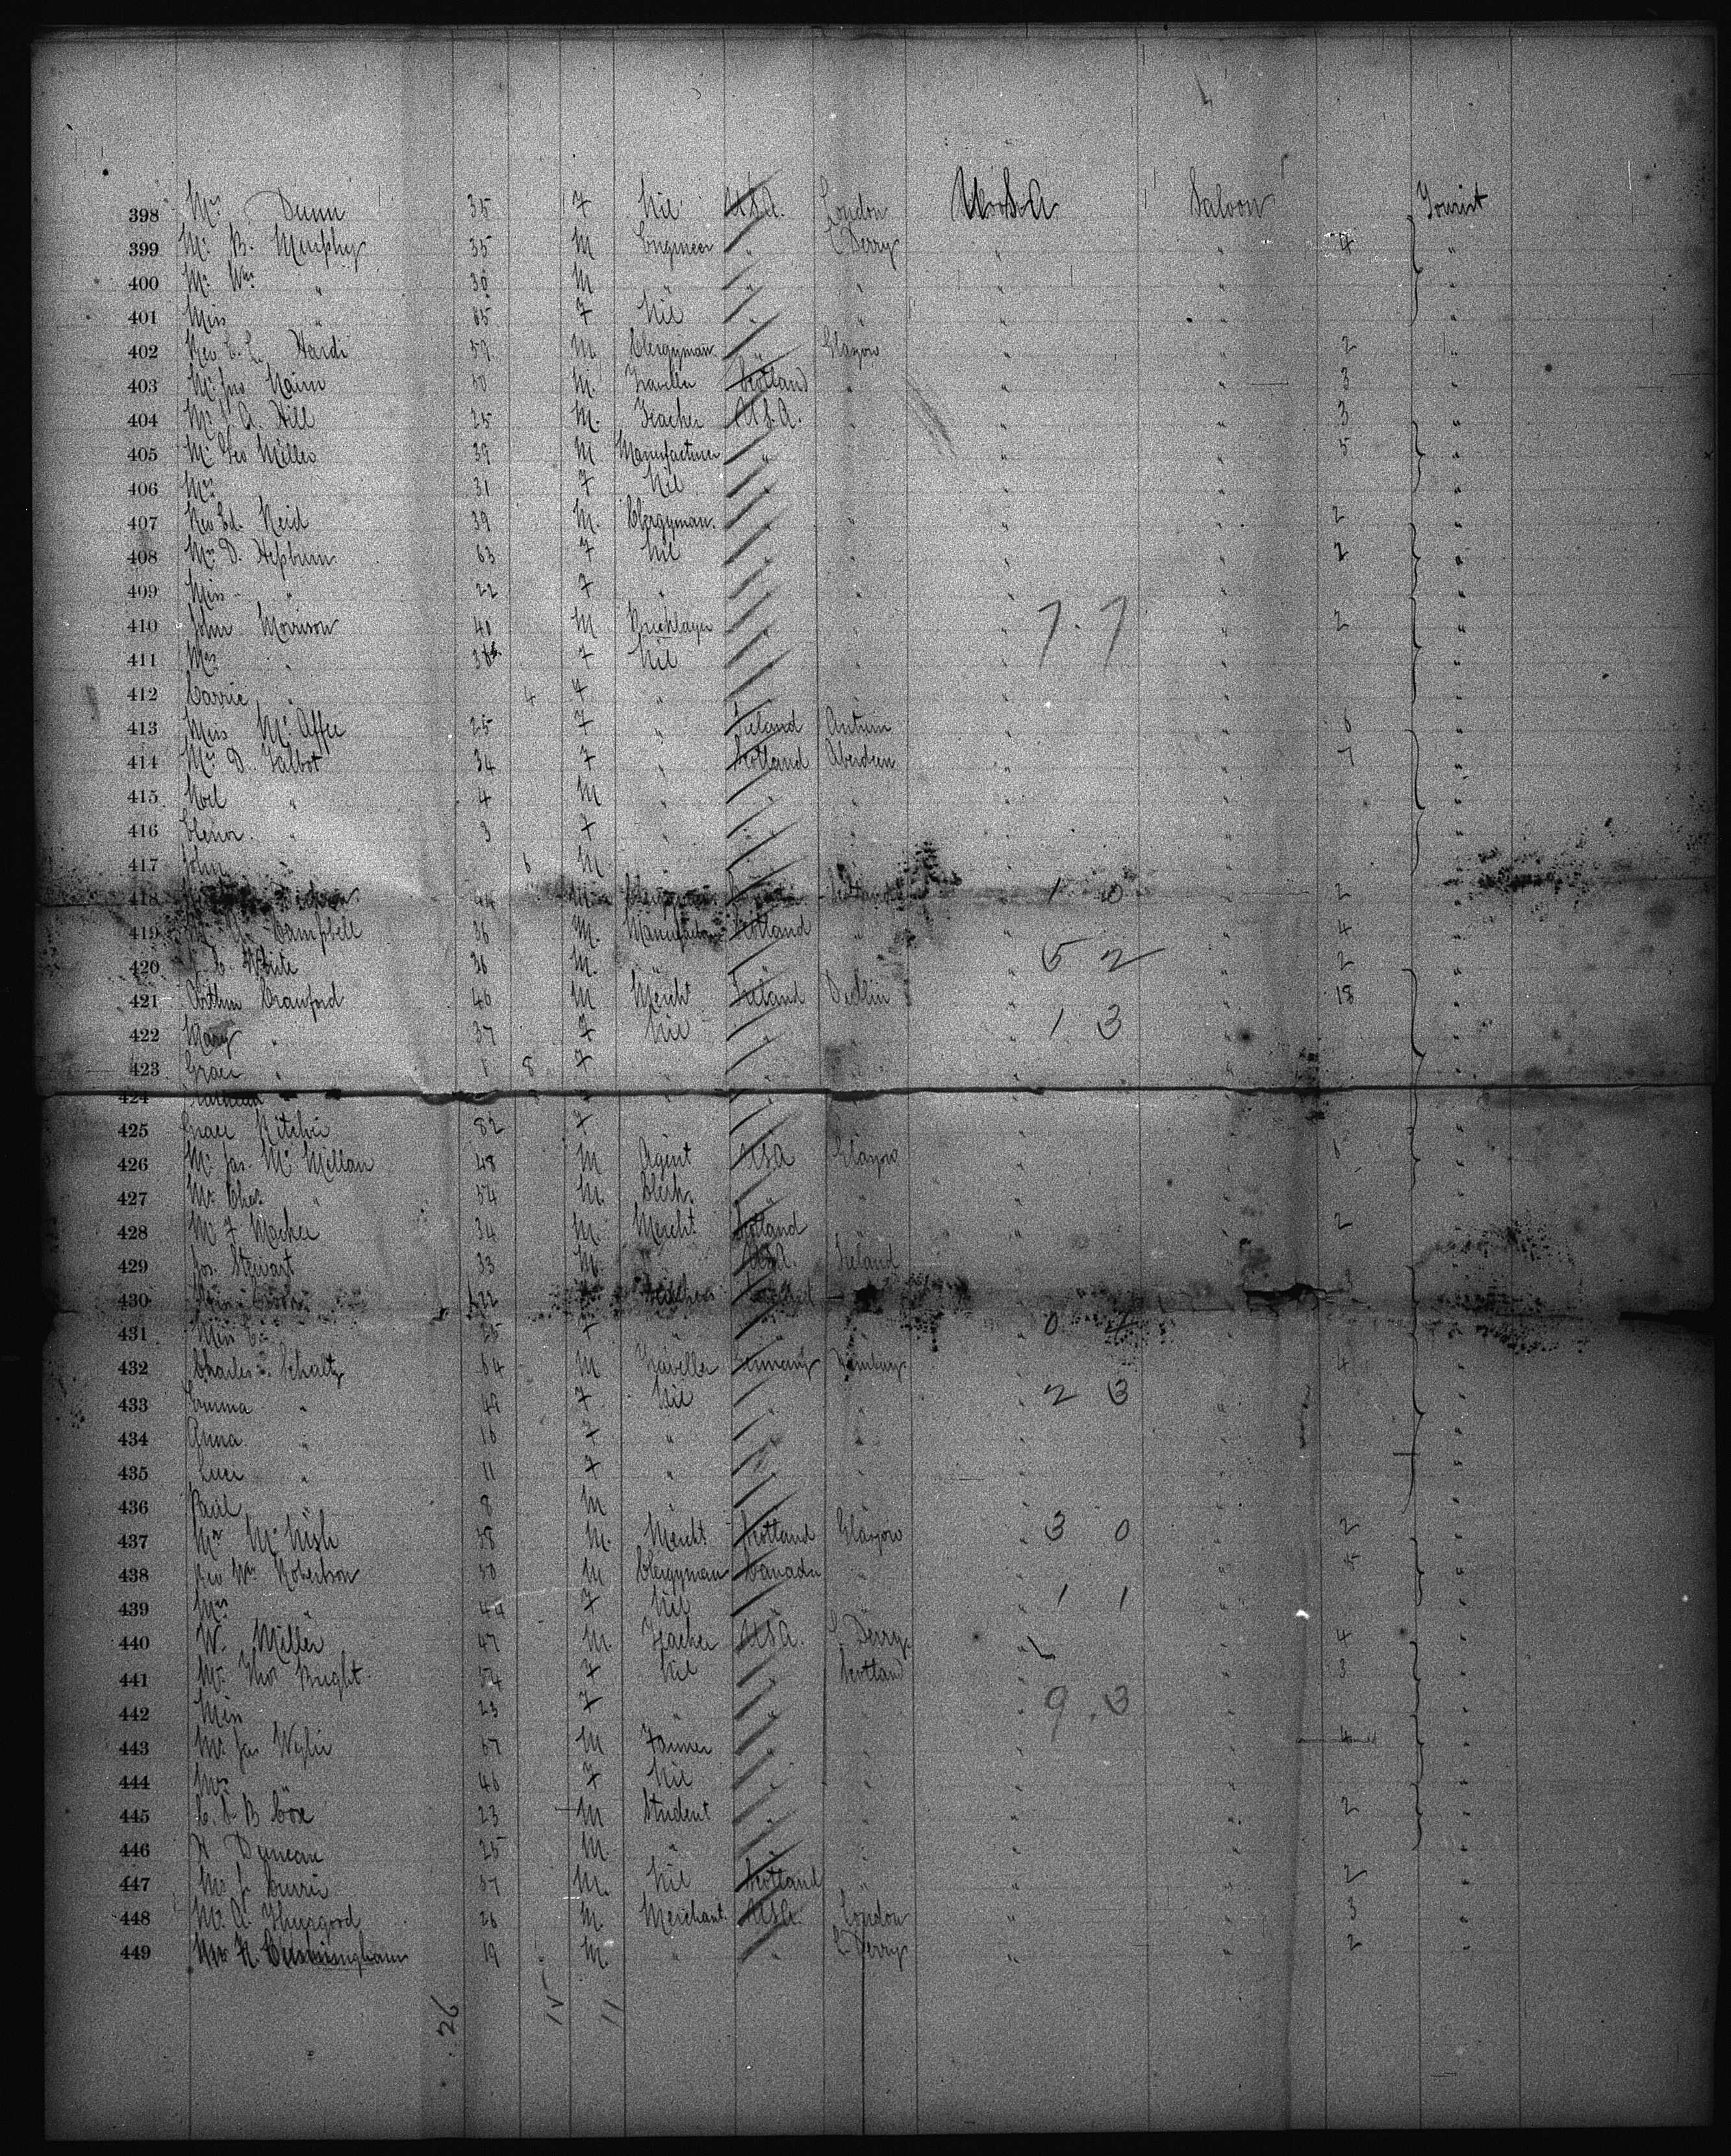 398 Mrs Dunn 35 F Nil U.S.A. London U.S.A. Saloon Tourist
399 Mr B. Murphy 35 M Engineer " L Derry " " 4 "
400 Mr Wm " 30 M " " " " " "
401 Miss " F Nil " " " " "
402 Rev E. L. Hardi 59 M. Clergyman " Glasgow " " 2 "
403 Mr Jno. Nairn 50 M. Traveller Scotland " " " 3 "
404 Mr J. A. Hill 25 M. Teacher U.S.A. " " " 3 "
405 Mr Geo Miller 39 M Manufacturer " " " " 5 "
406 Mrs " 31 F Nil " " " " "
407 Rev Ed. Reid 39 M. Clergyman. " " " " 2 "
408 Mrs D. Hepburn 63 F Nil " " " " 2 "
409 Miss " 22 F " " " " " "
410 John Morrison 40 M Bricklayer " " " 7.7 " 2 "
411 Mrs " F Nil " " " " "
412 Carrie " 4 F " " " " " "
413 Miss McAffee 25 F " Ireland Antrim " " 6 "
414 Mrs D. Talbot 34 F " Scotland Aberdeen " " 7 "
415 Noel " 4 M " " " " " "
416 Elenor " 3 F " " " " " "
417 John " 6 M " " " " " "
418 44 M. Scotland " 1 0 " 2 "
419 Campbell 36 M. Manufacturer Scotland " " " 4 "
420 J. C. White 26 M. " " " " 5 2 " 2 "
421 Arthur Cranford 46 M Mercht Ireland Dublin " " 18 "
422 Mary " 37 F Nil " " " 1 3 " "
423 Grace " 8 F " " " " " "
424
425 Grace Ritchie 82 F " " " " "
426 Mr Jas. McMillan 48 M Agent USA Glasgow " " 6 "
427 Mr Chas. " 54 M. Clerk. " " " " "
428 Mr F Mackee 34 M. Mercht Scotland " " " 2 "
429 Jos. Stewart 33 M. " U.S.A. Ireland " " "
430 Miss 22 F " "
431 Miss E. " 25 F " " " " 0 4 " "
432 Charles Schultz 64 M Traveller Germany Hamburg " " 4 "
433 Emma " 49 F Nil " " " 2 3 " "
434 Anna " 16 F " " " " " "
435 " 11 F " " " " " "
436 Paul 8 M " " " " " "
437 Mr McNish 38 M. Mercht Scotland Glasgow " 3 0 " 2 "
438 Rev Wm Robertson 50 M Clergyman Canada " " " 5 "
439 Mrs " 44 F Nil " " " 1 1 " "
440 W. Miller 47 M. Teacher U.S.A. L. Derry " " 4 "
441 Mrs Thos Bright 54 F Nil " Scotland " " 3 "
442 Miss " 23 F " " " " 9.3 " "
443 Mr Jas Wylie 67 M Farmer " " " " 4 "
444 Mrs " 46 F Nil " " " " "
445 C. S. B. Cox 23 M Student " " " " 2 "
446 H Duncan 25 M. " " " " " "
447 Mr J. Currie 57 M. Nil Scotland " " " 2 "
448 Mr A. Thurgood 26 M. Merchant. U.S.A. London " " 3 "
449 Mr H. Cunningham 19 M. " " L. Derry " " 2 "
26 15 11